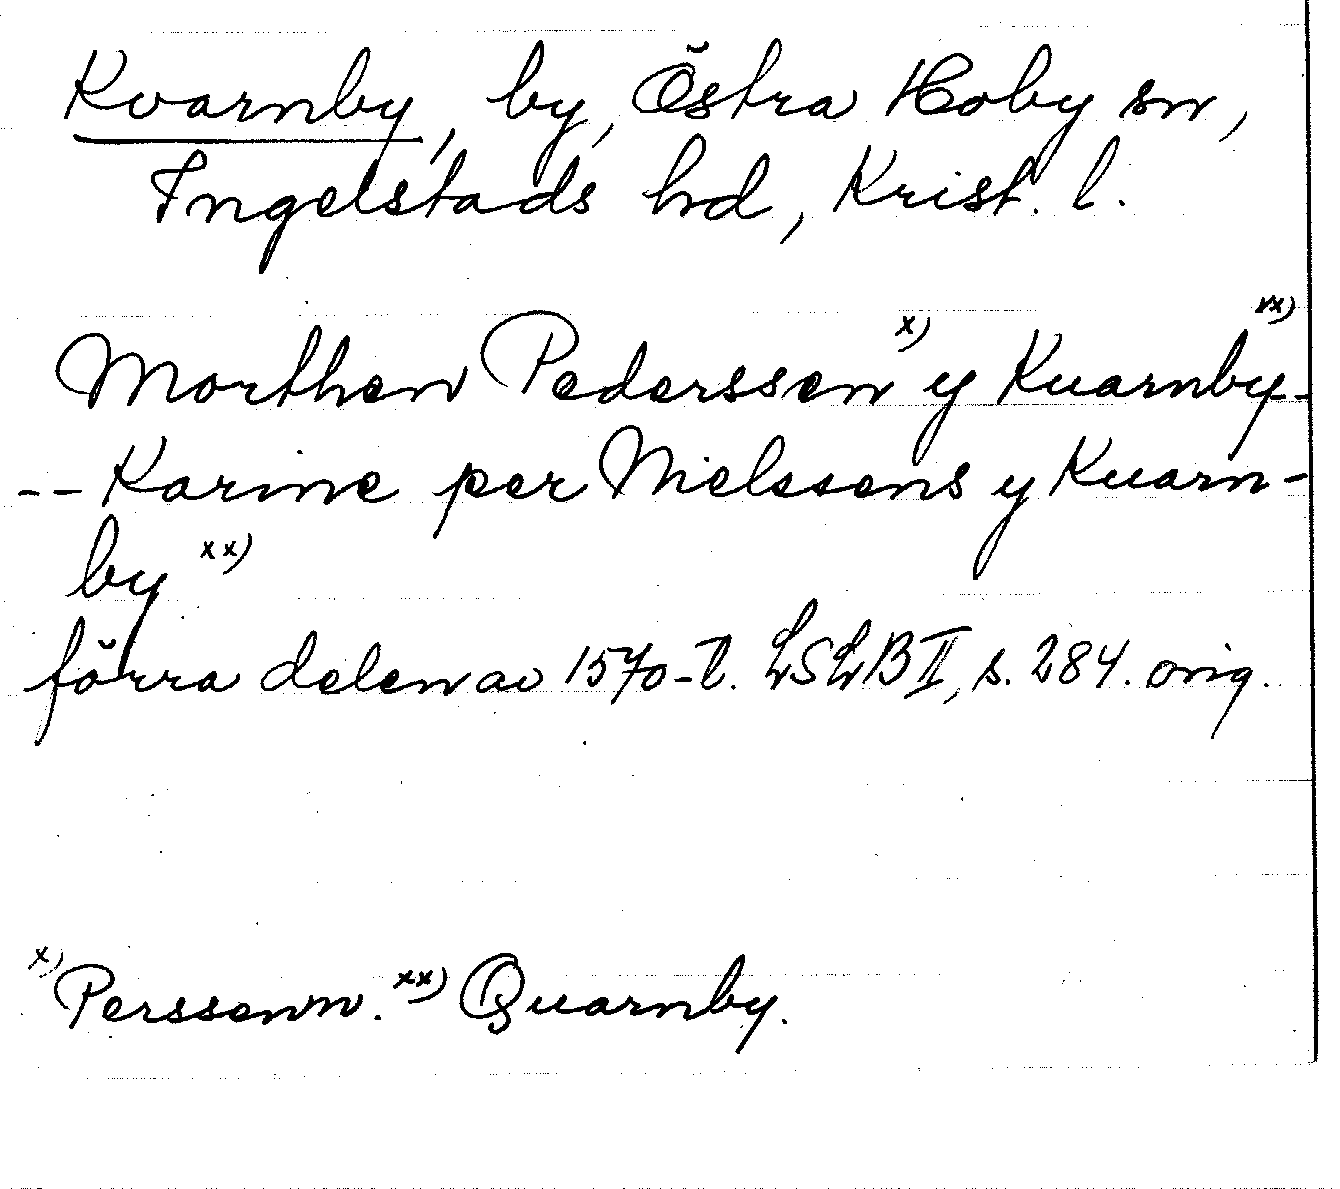 Kvarnby, by, Östra Hoby sn,
Ingelstads hd, Krist. l.
Morthen Pederssen x) y Kuarnby xx) --
-- Karine per Nielssens y Kuarn-
by xx)
förra delen av 1570-t. LSLB II, s. 284. orig.
x) Perssenn. xx) Quarnby.